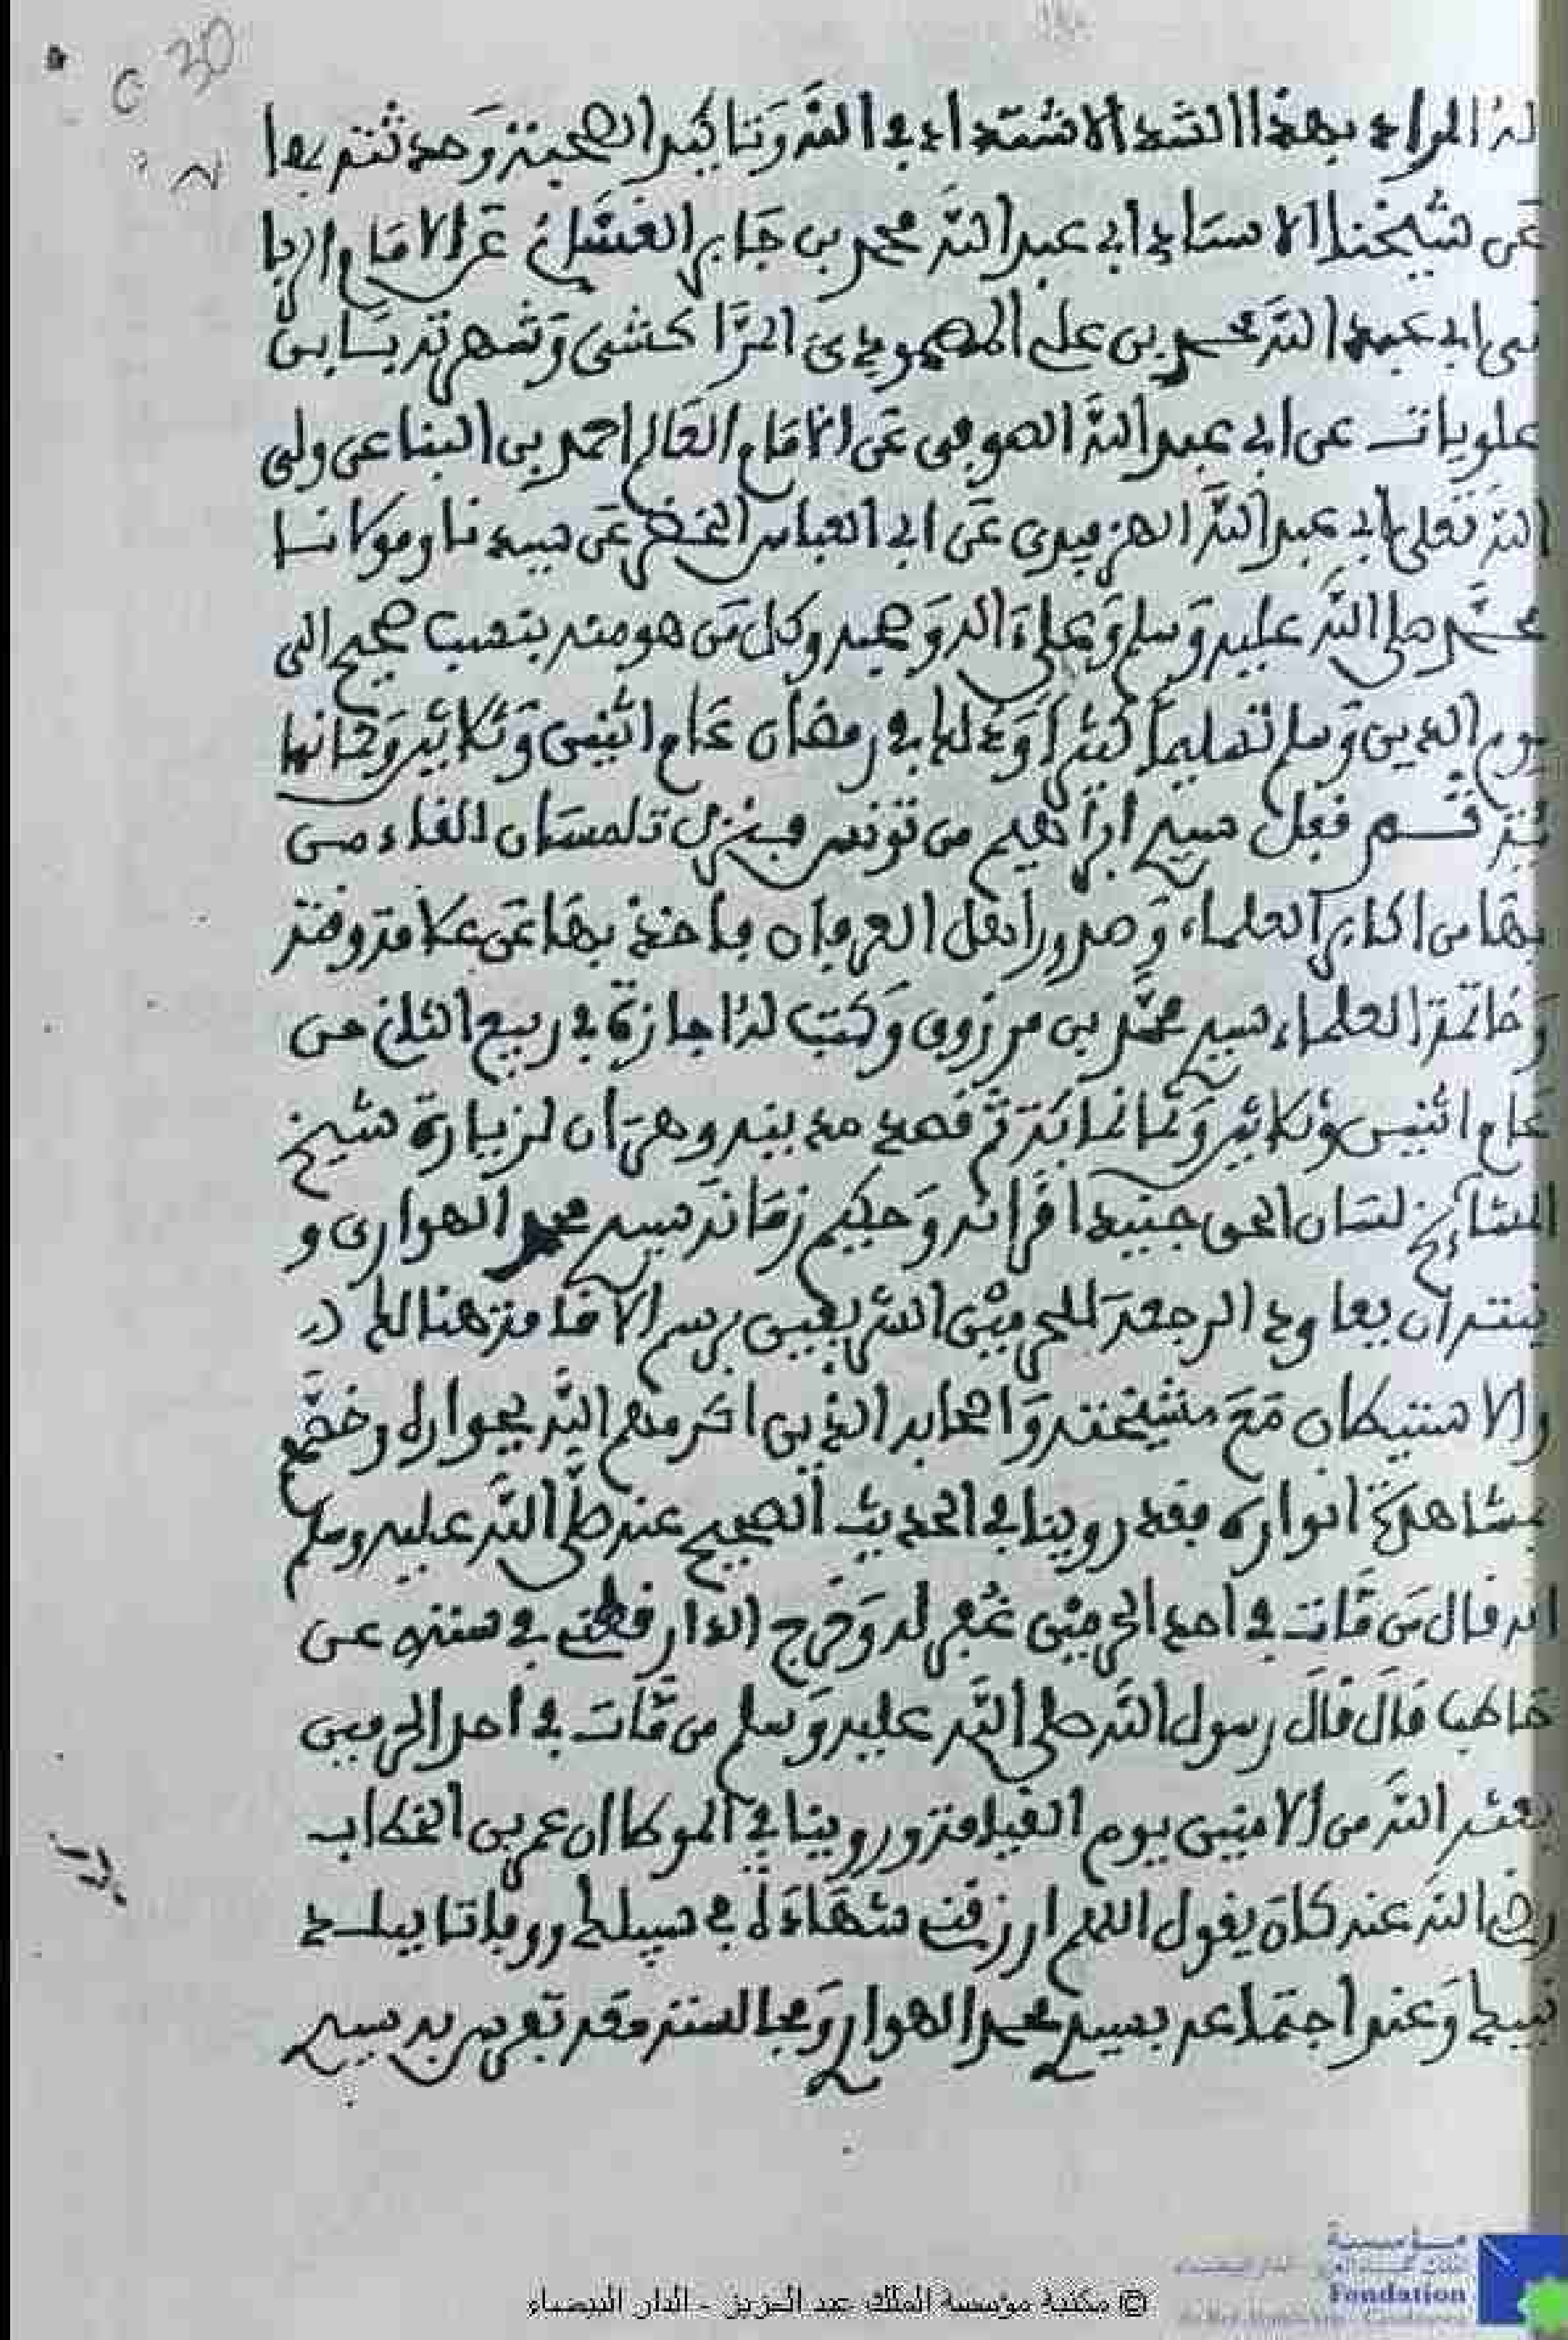 30
له المراد بهذا الشد الاشتداد في الله وتاكيد الصحبة وحدثته بها
عن شيخنا الاستاذ ابي عبد الله محمد بن جابر الغساني عن الامام الربا
ني ابي عبد الله محمد بن علي المصمودي المراكشي وشهرته بابن
علويات عن ابي عبد الله الصوفي عن الامام العالم احمد بن البنا عن ولي
الله تعلى ابي عبد الله الهزميري عن ابي العباس الخضر عن سيدنا ومولانا
محمد صلى الله عليه وسلم وعلى ءاله وصحبه وكل من هو منه بنصب صحيح الى
يوم الدين وسلم تسليما كثيرا وذلك في رمضان عام اثنين وثلاثين وثمانما
ئة ثم قفل سيدي ابراهيم من تونس فنزل تلمسان للقاء من
بها من اكابر العلماء وصدور اهل العرفان فاخذ بها عن علامة وقته
وخاتمة العلماء سيدي محمد بن مرزوق وكتب له اجازة في ربيع الثاني من
عام اثنين وثلاثين وثمانمائة ثم قصد مدينة وهران لزيارة شيخ
المشائخ لسان الحق جنيد اقرانه وحكيم زمانه سيدي محمد الهواري و
نيته ان يعاود الرجعة للحرمين الشريفين برسم الاقامة هنالك
والاستيطان مع مشيخته واصحابه الذين اكرمهم الله بجواره وخصهم
بمشاهدة انواره فقد روينا في الحديث الصحيح عنه صلى الله عليه وسلم
انه قال من مات في احد الحرمين غفر له وخرج الدارقطني في سننه عن
حاطب قال قال رسول الله صلى الله عليه وسلم من مات في احد الحرمين
بعثه الله من الامنين يوم القيامة وروينا في الموطا ان عمر بن الخطاب
رضي الله عنه كان يقول اللهم ارزقني شهادة في سبيلك ووفاتا ببلد
نبيك وعند اجتماعه بسيدي محمد الهواري ومجالسته فقد تفرس به سيدي
© مكتبة مؤسسة الملك عبد العزيز - الدار البيضاء
مؤسسة
Fondation